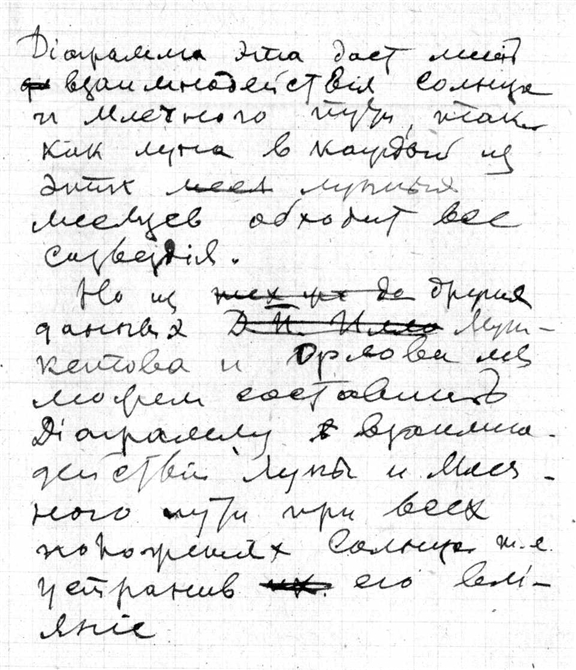 Діаграмма эта даст места
взаимнодействія Солнца
и млечного пути, так
как луна в каждый из
этих лунных
месяцев обходит все
созвездія.
Но из других
данных Муш-
кетова и Орлова мы
можем составить
Діаграмму взаимно-
действій Луны и Млеч-
ного пути при всех
положениях Солнца т.е.
устранив его влі-
яніе